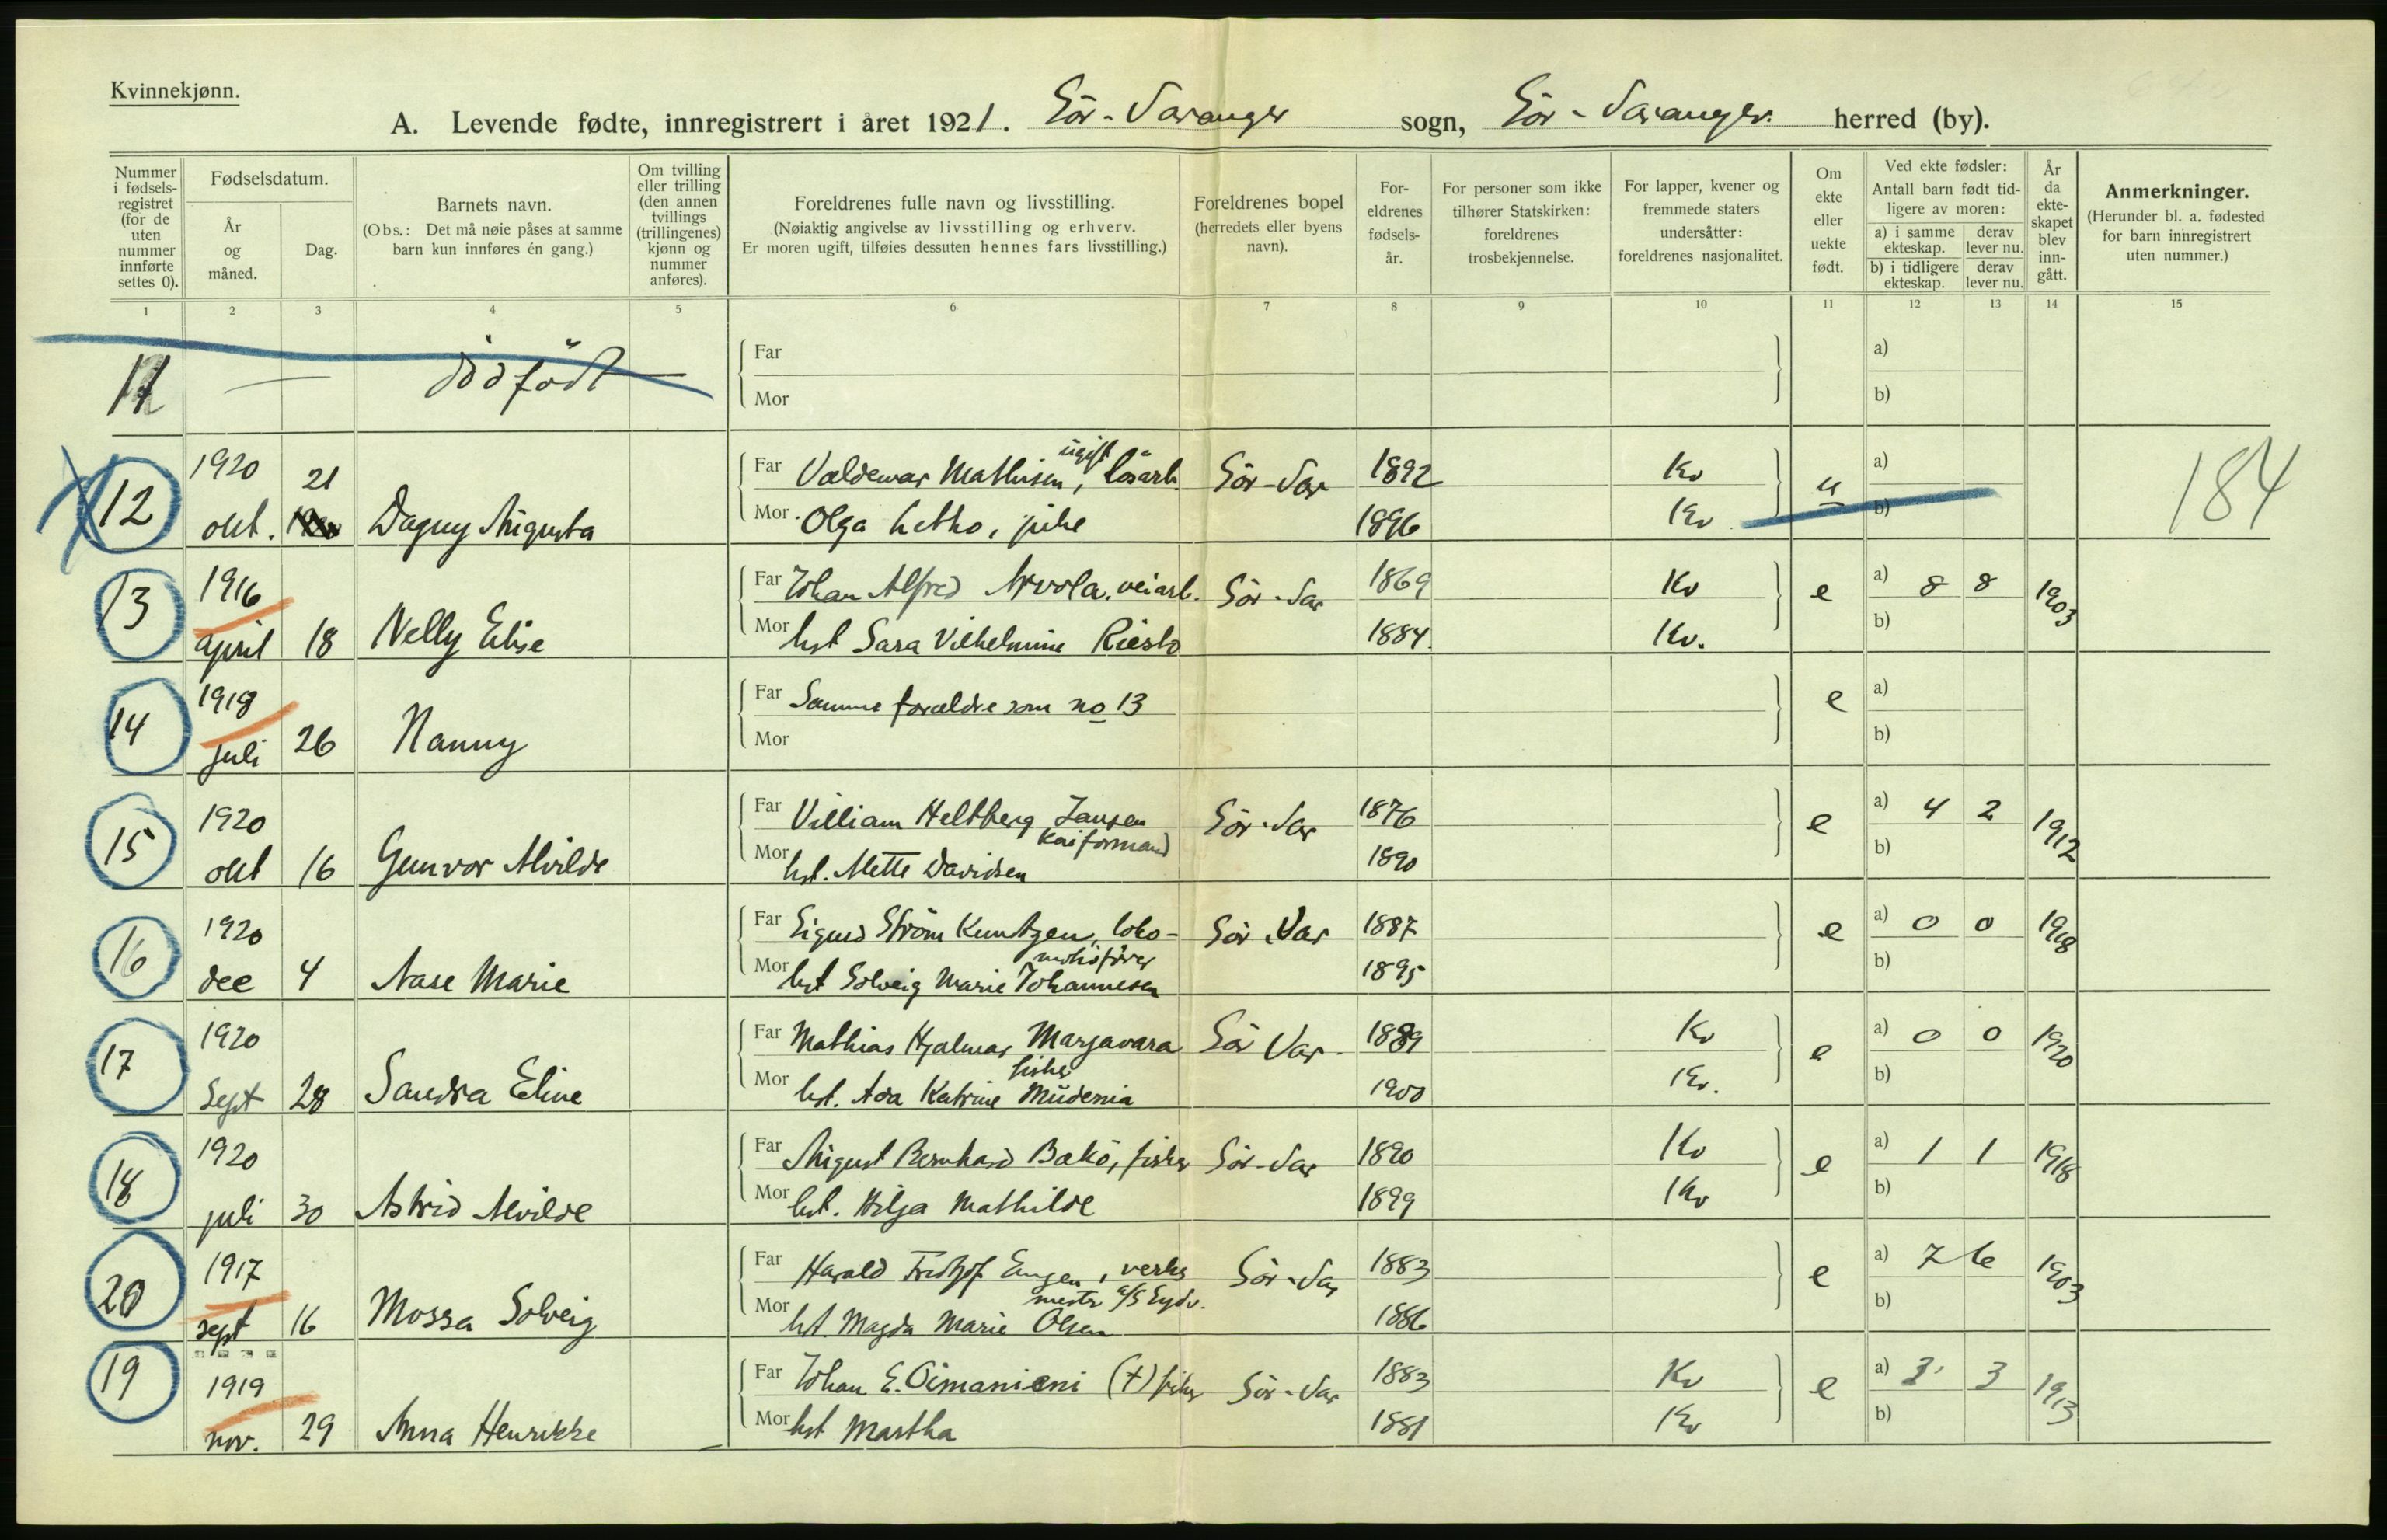 Kvinnekjønn.
A. Levende fødte, innregistrert i året 1921. Sör-Varanger sogn, Sör-Varanger herred (by).
Nummer i fødsels-registret (for de uten nummer innførte settes 0).
Fødselsdatum.
År og måned.
Dag.
Barnets navn.
(Obs.: Det må nøie påses at samme barn kun innføres én gang.)
Om tvilling eller trilling (den annen tvillings (trillingenes) kjønn og nummer anføres).
Foreldrenes fulle navn og livsstilling.
(Nøiaktig angivelse av livsstilling og erhverv.
Er moren ugift, tilføies dessuten hennes fars livsstilling.)
Foreldrenes bopel (herredets eller byens navn).
For-eldrenes fødsels-år.
For personer som ikke tilhører Statskirken: foreldrenes trosbekjennelse.
For lapper, kvener og fremmede staters undersåtter: foreldrenes nasjonalitet.
Om ekte eller uekte født.
Ved ekte fødsler:
Antall barn født tid-ligere av moren:
a) i samme ekteskap.
derav lever nu.
b) i tidligere ekteskap.
derav lever nu.
År da ekte-skapet blev inn-gått.
Anmerkninger.
(Herunder bl. a. fødested for barn innregistrert uten nummer.)
1 2 3 4 5 6 7 8 9 10 11 12 13 14 15
11 — dödfödt Far a)
Mor b)
1920 21 Far Valdemar Mathisen, ugift lösarb. Sör-Var 1892 Kv u a) 184
12 okt. Dagny Augusta Mor Olga Letho, pike 1896 Kv b)
1916 Far Johan Alfred Arvola, veiarb. Sör-Var 1869 Kv e a) 8 8 1903
13 april 18 Nelly Elise Mor hst Sara Vilhelmine Riesto 1884. Kv. b)
1918 Far Samme forældre som no 13 e a)
14 juli 26 Nanny Mor b)
1920 Far Villiam Heltberg Jansen Sör-Var 1876 e a) 4 2 1912
kaiformand
15 okt 16 Gunvor Alvilde Mor hst. Mette Davidsen 1890 b)
1920 Far Sigurd Ström Kuntzen, loko- Sör-Var 1887 e a) 0 0 1918
motivförer
16 dec 4 Aase Marie Mor hst Solveig Marie Johannesen 1895 b)
1920 Far Mathias Hjalmar Marjavara Sör Var. 1889 Kv e a) 0 0 1920
fisker
17 Sept 28 Sandra Eline Mor hst. Ada Katrine Mudenia 1900 Kv. b)
1920 Far August Bernhard Bakö, fisker Sör-Var 1890 Kv e a) 1 1 1918
18 juli 30 Astrid Alvilde Mor hst. Hilja Mathilde 1899 Kv b)
1917 Far Harald Fridtjof Engen, verks Sör-Var 1883 e a) 7 6 1903
mester a/S Sydv.
20 sept 16 Mossa Solveig Mor hst Magda Marie Olsen 1886 b)
19 1919 Far Johan E. Oimanieni (†) fisker Sör-Var 1883 Kv e a) 3 3 1913
nov. 29 Anna Henrikke Mor hst Martha 1881 Kv b)